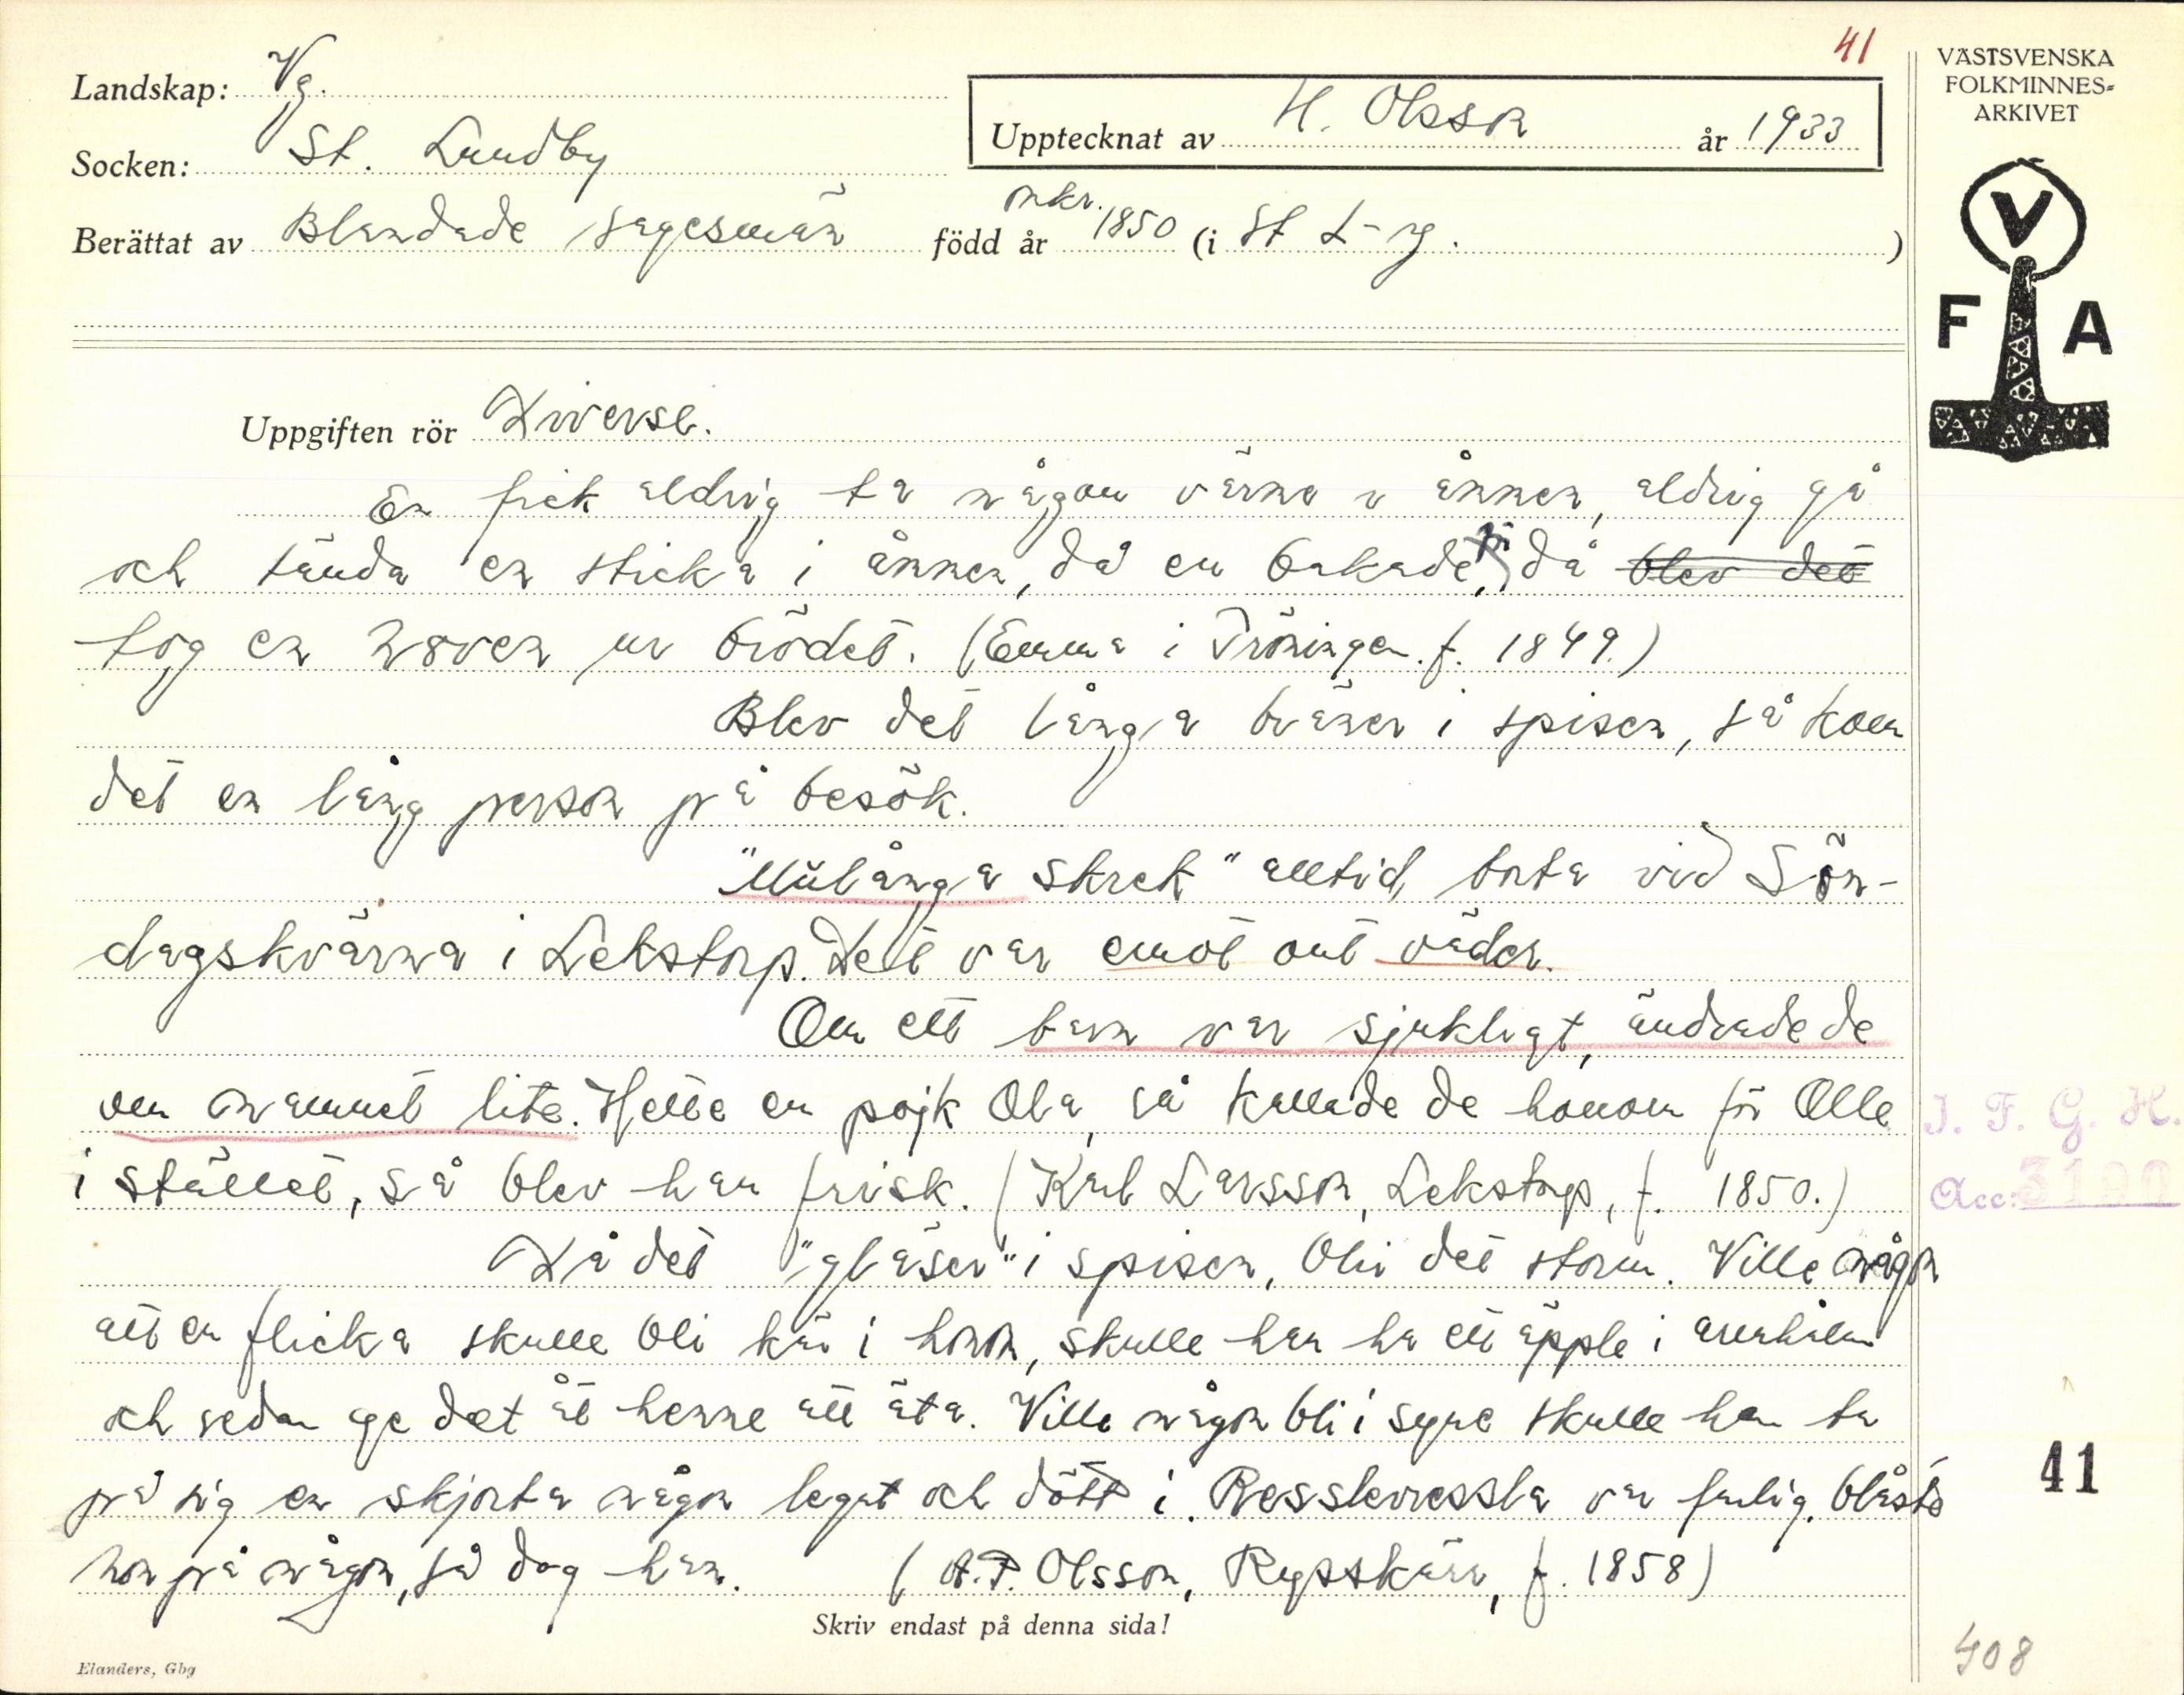 41
Landskap: Vg.
Socken: St. Lundby
Upptecknat av H. Olsson år 1933
Berättat av Blandade sagesmän född år omkr. 1850 (i St L-y.)
VÄSTSVENSKA
FOLKMINNES-
ARKIVET
V
F A
Uppgiften rör Diverse.
En fick aldrig ta någon värme ur ånnen, aldrig gå
och tända en sticka i ånnen, då en bakade, då blev det
tog en  ur brödet. (Emma i Tröningen. f. 1849.)
Blev det långa bräner i spisen, så kom
det en lång person på besök.
"Mülånga skrek" alltid borta vid Sön-
dagskvärna i Lekstorp. Det var emot ont väder.
Om ett barn var sjukligt, ändrade de
om namnet lite. Hette en pojk Ola, så kallade de honom för Olle
i stället, så blev han frisk. (Karl Larsson, Lekstorp, f. 1850.)
Då det "gläser" i spisen, blir det storm. Ville någon
att en flicka skulle bli kär i honom, skulle han ha ett äpple i armhålan
och sedan ge det åt henne att äta. Ville någon bli i syne skulle han ta
på sig en skjorta någon legat och dött i. Resslevessla var farlig, blåste
hon på någon, så dog han. (A.P. Olsson, Rypskärr, f. 1858)
I. F. G. H.
Acc: 3190
41
Skriv endast på denna sida!
Elanders, Gbg
408